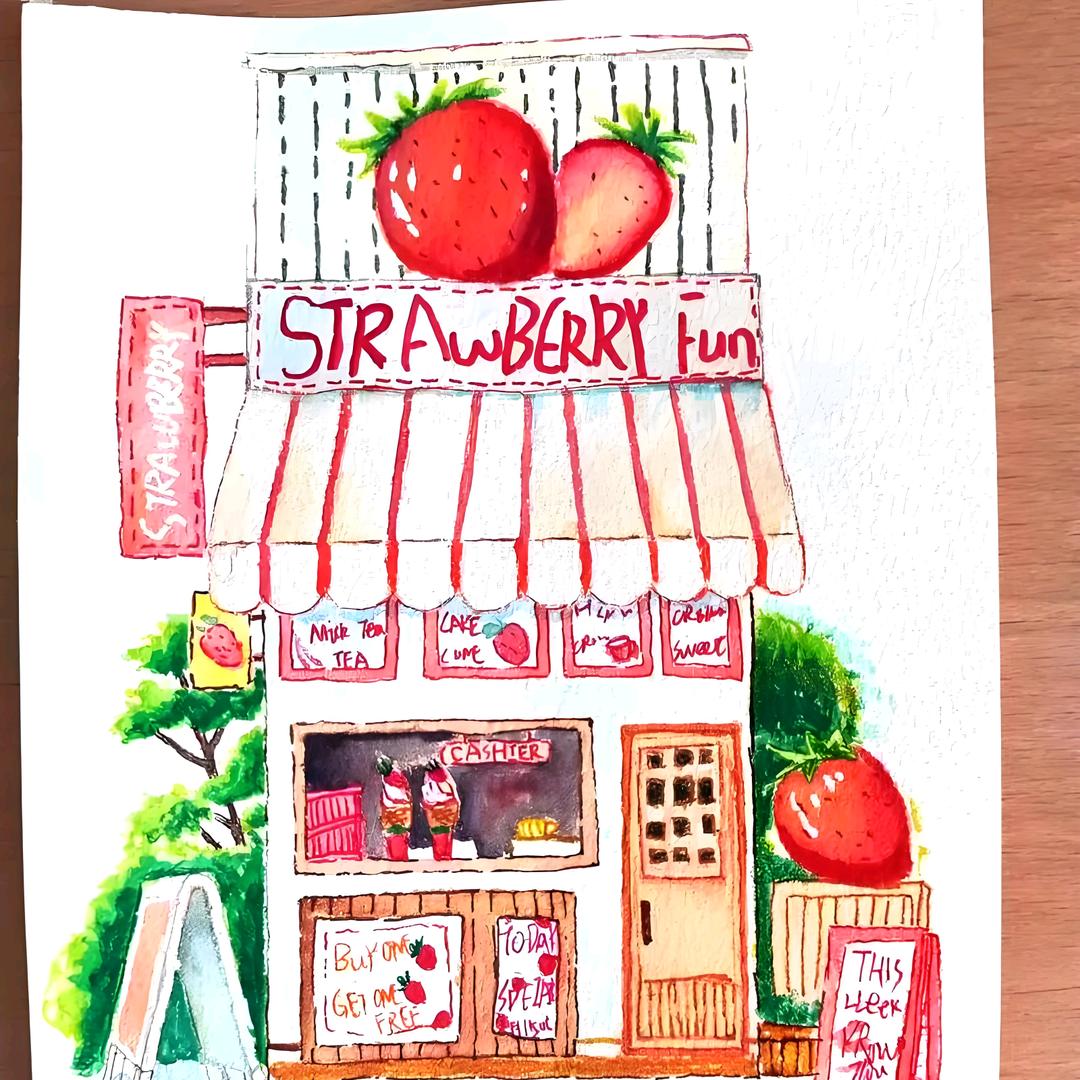 STRAWBERRY Fun
STRAWBERRY
Milk Tea
TEA
CAKE
SWEET
CASHIER
BUY ONE
GET ONE
FREE
TODAY
THIS
WEEK